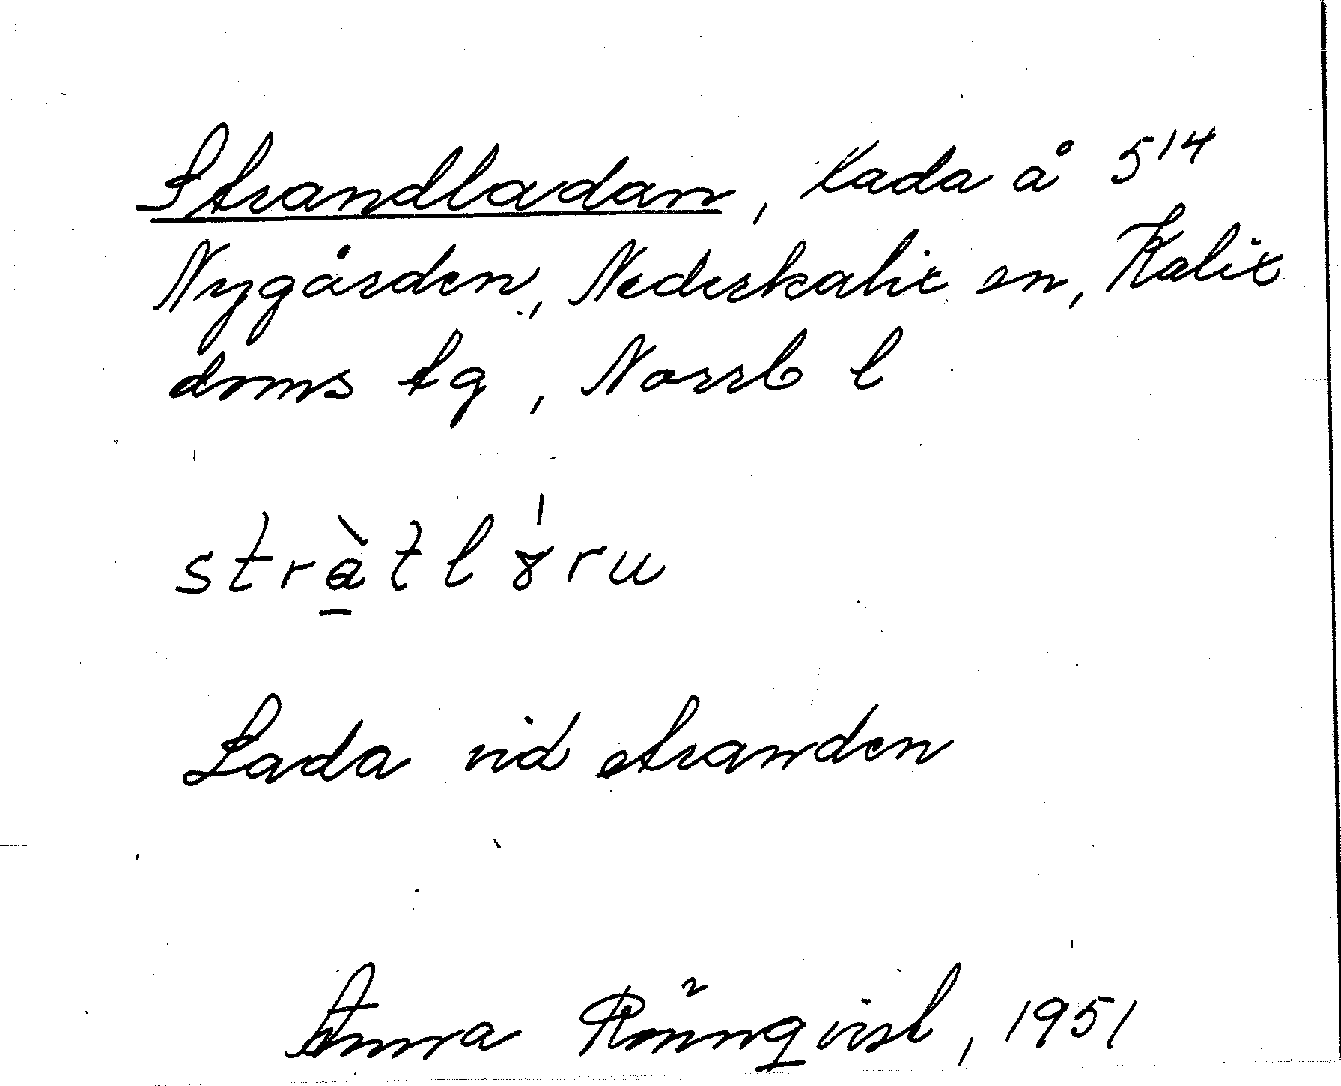 Strandladan, Lada å 5¹⁴
Nygården, Nederkalix sn, Kalix
doms tg, Norrb l
stràtlɤ́ru
Lada vid stranden
Anna Rönnqvist, 1951